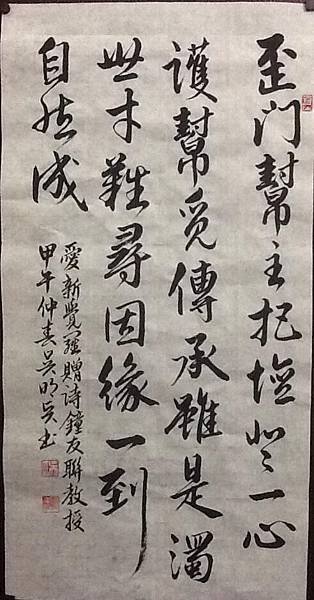 歪门幫主把壇登一心
護幫覓傳承雖是濁
世才難尋因緣一到
自然成
愛新覺羅贈诗鐘友聯教授
甲午仲春吴明书